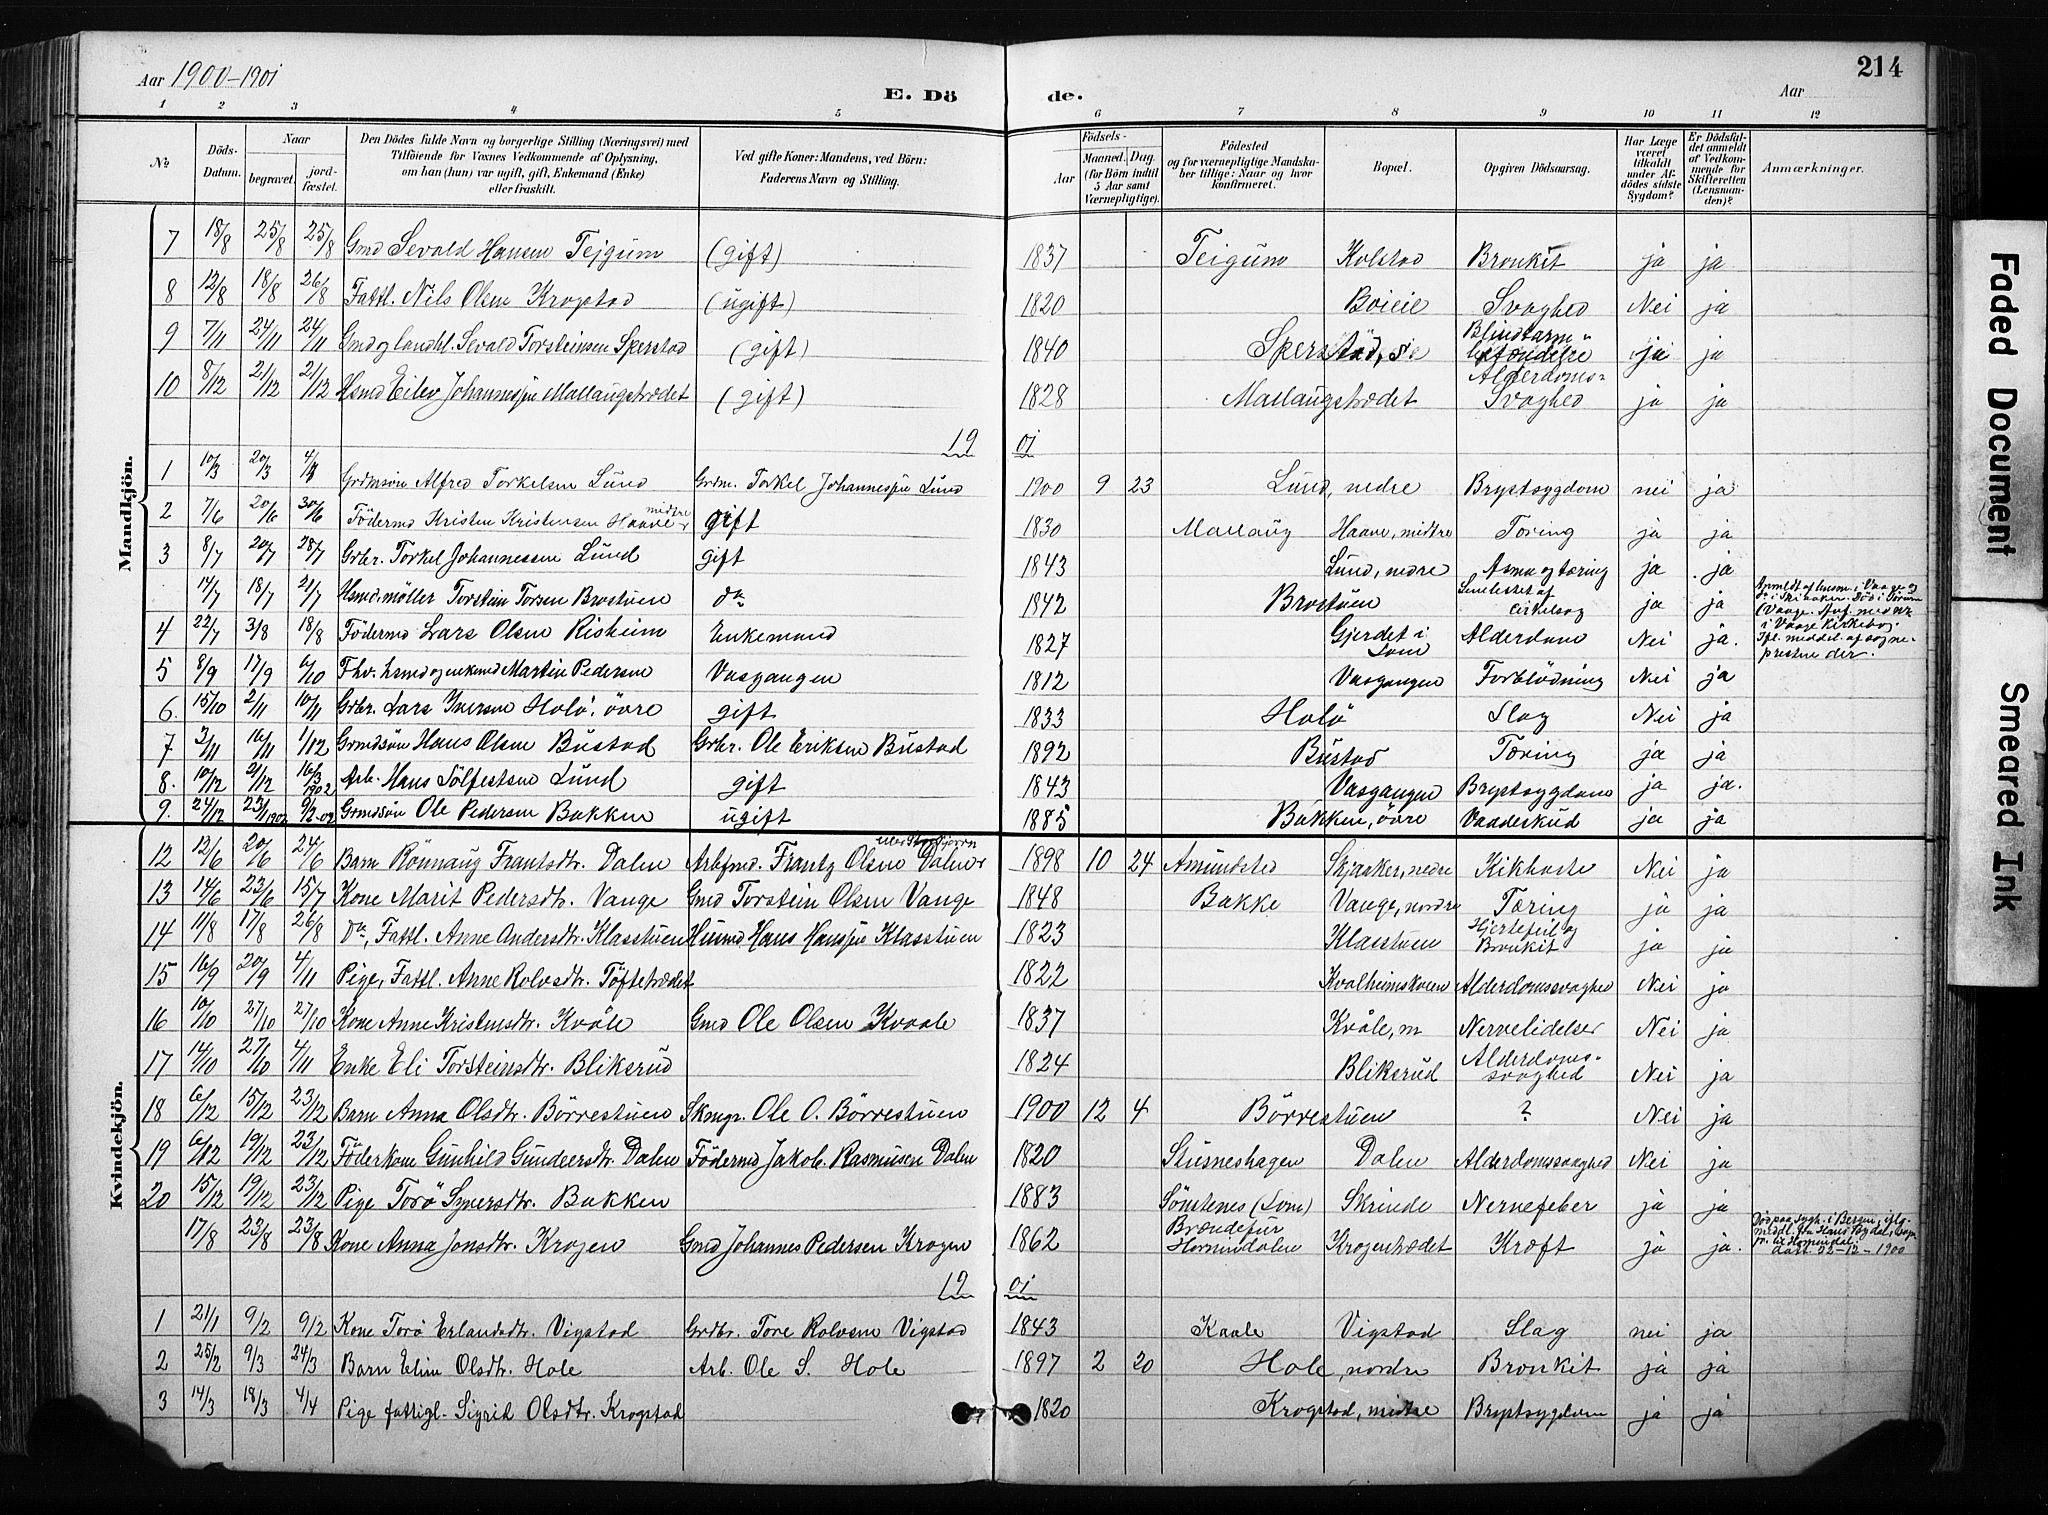 Aar 1900-1901
E. Dö de.
Aar
214
1 2 3 4 5 6 7 8 9 10 11 12
No
Döds-Datum.
Naar begravet. jordfæstet.
Den Dödes fulde Navn og borgerlige Stilling (Næringsvei) med Tilföiende for Voxnes Vedkommende af Oplysning, om han (hun) var ugift, gift, Enkemand (Enke) eller fraskilt.
Ved gifte Koner: Mandens, ved Börn: Faderens Navn og Stilling.
Födsels-
Aar
Maaned. Dag. (for Börn indtil 5 Aar samt Værnepligtige).
Födested og for værnepligtige Mandskaber tillige: Naar og hvor konfirmeret.
Bopæl.
Opgiven Dödsaarsag.
Har Læge været tilkaldt under Afdödes sidste Sygdom?
Er Dödsfaldet anmeldt af Vedkommende for Skifteretten (Lensmanden)?
Anmærkninger.
Mandkjön.
7 18/8 25/8 25/8 Gmd Sevald Hansen Tejgum (gift) 1837 Teigum Kolstad Bronkit ja ja
8 12/8 18/8 26/8 Fattl. Nils Olsen Krogstad (ugift) 1820 Svaghed Nei ja
9 7/11 24/11 24/11 Gmd og landhl. Sevald Torsteinsen Sperstad (gift) 1840 Sperstad, Blindtarmbetændelse ja ja
10 8/12 21/12 21/12 Hsmd Eilev Johannessen Mallaugstrædet (gift) 1828 Mallaugstrædet Alderdoms-Svaghed ja ja
19 01
1 10/3 20/3 Grdmsøn Alfred Torkelsen Lund Grdm. Torkel Johannessen Lund 1900 9 23 Lund, nedre Brystsygdom nei ja
2 7/6 20/6 30/6 Födermd Kristen Kristensen Haave midtre gift 1830 Mallaug Haave, midtre Tæring ja ja
3 8/7 20/7 28/7 Grbr. Torkel Johannessen Lund gift 1843 Lund, nedre Asma og tæring ja ja
14/7 18/7 21/7 Hsmd. möller Torstein Torsen Brostuen do 1842 Brostuen cirkelsag ja ja
4 22/7 3/8 18/8 Födermd Lars Olsen Risheim Enkemand 1827 Gjerdet i Lom Alderdom Nei ja.
i Vaage Kirkebog. Ifl. meddel. af sognepresten der.
5 8/9 17/9 6/10 Fhv. hsmd og enkemd Martin Pedersen Vasgangen 1812 Vasgangen Forblödning Nei ja
6. 15/10 2/11 10/11 Grbr. Lars Iversen Holö, övre gift 1833 Holö Slag Nei ja
7 3/11 16/11 1/12 Grmdsön Hans Olsen Bustad Grbr. Ole Eriksen Bustad 1892 Bustad Tæring ja ja
8. 10/12 21/12 16/3 1902 Arb. Hans Sölfestsen Lund gift 1843 Vasgangen Brystsygdom ja ja.
9. 24/12 23/1 1902 9/2-02 Grmdsön Ole Pedersen Bakken ugift 1885 Bakken, övre Vaadeskud ja ja
Kvindekjön.
12 12/6 20/6 24/6 Barn Rönnaug Frantsdtr. Dalen Arbfmd. Frantz Olsen Dalen 1898 10 24 Amundstad Skjaaker, nedre Kikhoste Nei ja
13 14/6 23/6 15/7 Kone Marit Pedersdtr. Vange Gmd Torstein Olsen Vange 1848 Bakke Vange, nordre Tæring ja ja
14 11/8 17/8 26/8 do, Fattl. Anne Andersdtr. Klasstuen Husmd Hans Hanssen Klasstuen 1823 Klasstuen Hjertefeil og Bronkit ja ja
15 16/9 20/9 4/11 Pige, Fattl. Anne Rolvsdtr. Töftetrædet 1822 Kvalheimskveen Alderdomssvaghed Nei ja
16 10/10 27/10 27/10 Kone Anne Kristensdtr. Kvåle Gmd Ole Olsen Kvaale 1837 Kvåle, m Nervelidelser Nei ja
17 14/10 27/10 4/11 Enke Eli Torsteinsdtr. Bliksrud 1824 Bliksrud Alderdoms-svaghed Nei ja
18 6/12 15/12 23/12 Barn Anna Olsdtr. Börrestuen Skmgr. Ole O. Börrestuen 1900 12 4 Börrestuen ? Nei ja
19 6/12 19/12 23/12 Föderkone Gunhild Gundersdtr. Dalen Födermd Jakob Rasmusen Dalen 1820 Slusneshagen Dalen Alderdomssvaghed Nei ja
20 15/12 19/12 23/12 Pige Torö Syversdtr. Bakken 1883 Sönstenes (Lom) Skrinde Nervefeber ja ja
17/8 23/8 23/8 Kone Anna Jonsdtr. Krogen Gmd Johannes Pedersen Krogen 1862 Hornindalen Krogentrædet Kræft ja ja.
Död paa sygh. i Bergen, iflg. medl. fra dat. 22-12-1900
19 01
1 21/1 9/2 9/2 Kone Torö Erlandsdtr. Vigstad Grdbr. Tore Rolvsen Vigstad 1843 Kvåle Vigstad Slag nei ja
2 25/2 9/3 24/3 Barn Eline Olsdtr. Hole Arb. Ole S. Hole 1897 2 20 Hole, nordre Bronkit ja ja
3 14/3 18/3 4/4 Pige fattigl. Sigrid Olsdtr. Krogstad 1820 Krogstad, midtre Brystsygdom ja ja
Faded Document
Smeared Ink